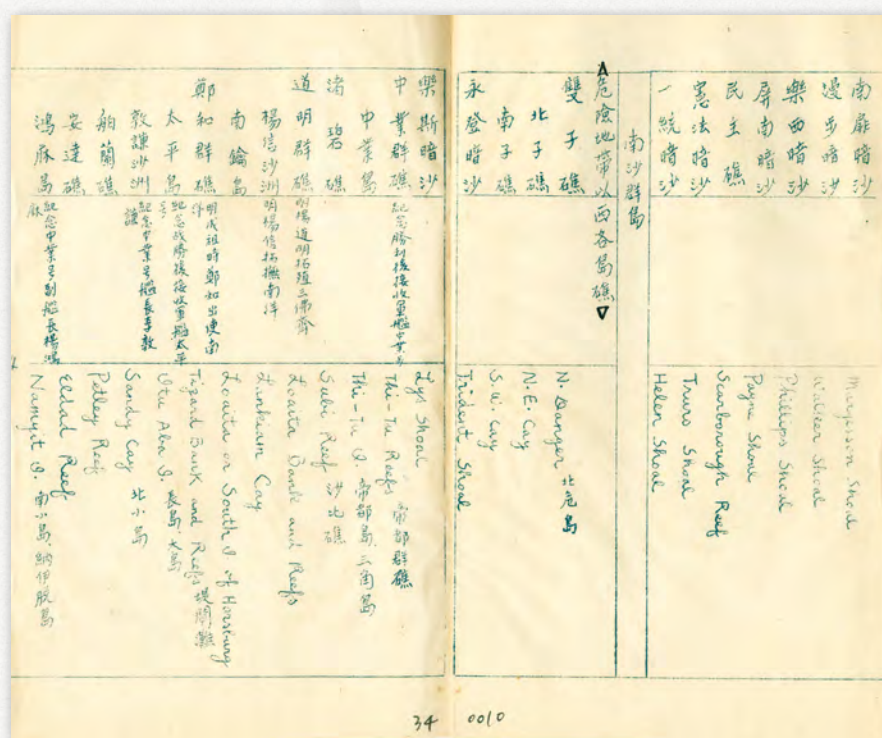 南扉暗沙
Magesson Shoal
漫步暗沙
Walker Shoal
樂西暗沙
Phillips Shoal
屏南暗沙
Payne Shoal
民主礁
Scarborough Reef
憲法暗沙
Truro Shoal
一統暗沙
Helen Shoal
南沙群島
A危險地帶以西各島礁
雙子礁
N. Danger 北危島
北子礁
N.E. Cay
南子礁
S.W. Cay
永登暗沙
Trident Shoal
樂斯暗沙
Lys Shoal
中業群礁
紀念勝利後接收軍艦中業号
Thi-Tu Reefs 帝都群礁
中業島
Thi-Tu I. 帝都島, 三角島
渚碧礁
Subi Reef 沙比礁
道明群礁
明楊道明拓殖三佛齊
Loaita Bank and Reefs
楊信沙洲
明楊信招撫南洋
Lankiam Cay
南鑰島
Loaita or South I. of Horsburg
鄭和群礁
明成祖時鄭和出使南洋
Tizard Bank and Reefs 堤閘灘
太平島
紀念战勝後接收軍艦太平号
Itu Aba I. 長島, 大島
敦謙沙洲
紀念中業号艦長李敦謙
Sandy Cay 北小島
舶蘭礁
Petley Reef
安達礁
Eldad Reef
鴻庥島
紀念中業号副艦長楊鴻庥
Namyit I. 南小島, 納伊脫島
34
0010